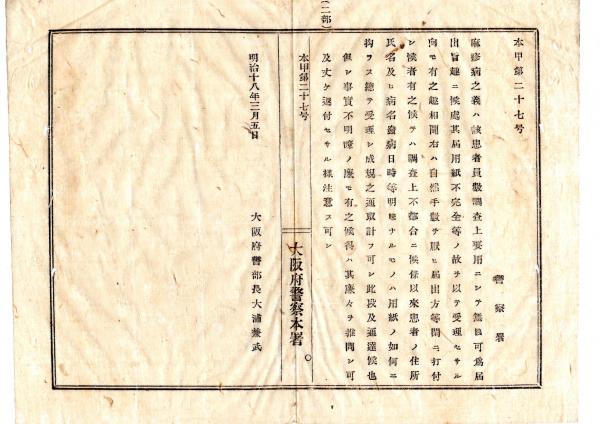 (二部)
本甲第二十七号
警察署
麻疹病之義ハ該患者員数調査上要用ニシテ無論可為届
出旨趣ニ候處其届用紙不完全等ノ故ヲ以テ受理セサル
向モ有之趣相聞右ハ自然手数ヲ厭ヒ届出方等閑ニ打付
シ候者有之候テハ調査上不都合ニ候條以來患者ノ住所
氏名及ヒ病名發病日時等明瞭ナルモノハ用紙ノ如何ニ
拘ラス總テ受理シ成規之通取計フ可シ此段及通達候也
但シ事實不明瞭ノ廉モ有之候得ハ其廉々ヲ推問シ可
及丈ケ返付セサル様注意ス可シ
大阪府警察本署
本甲第二十七号
明治十八年三月五日
大阪府警部長大浦兼武